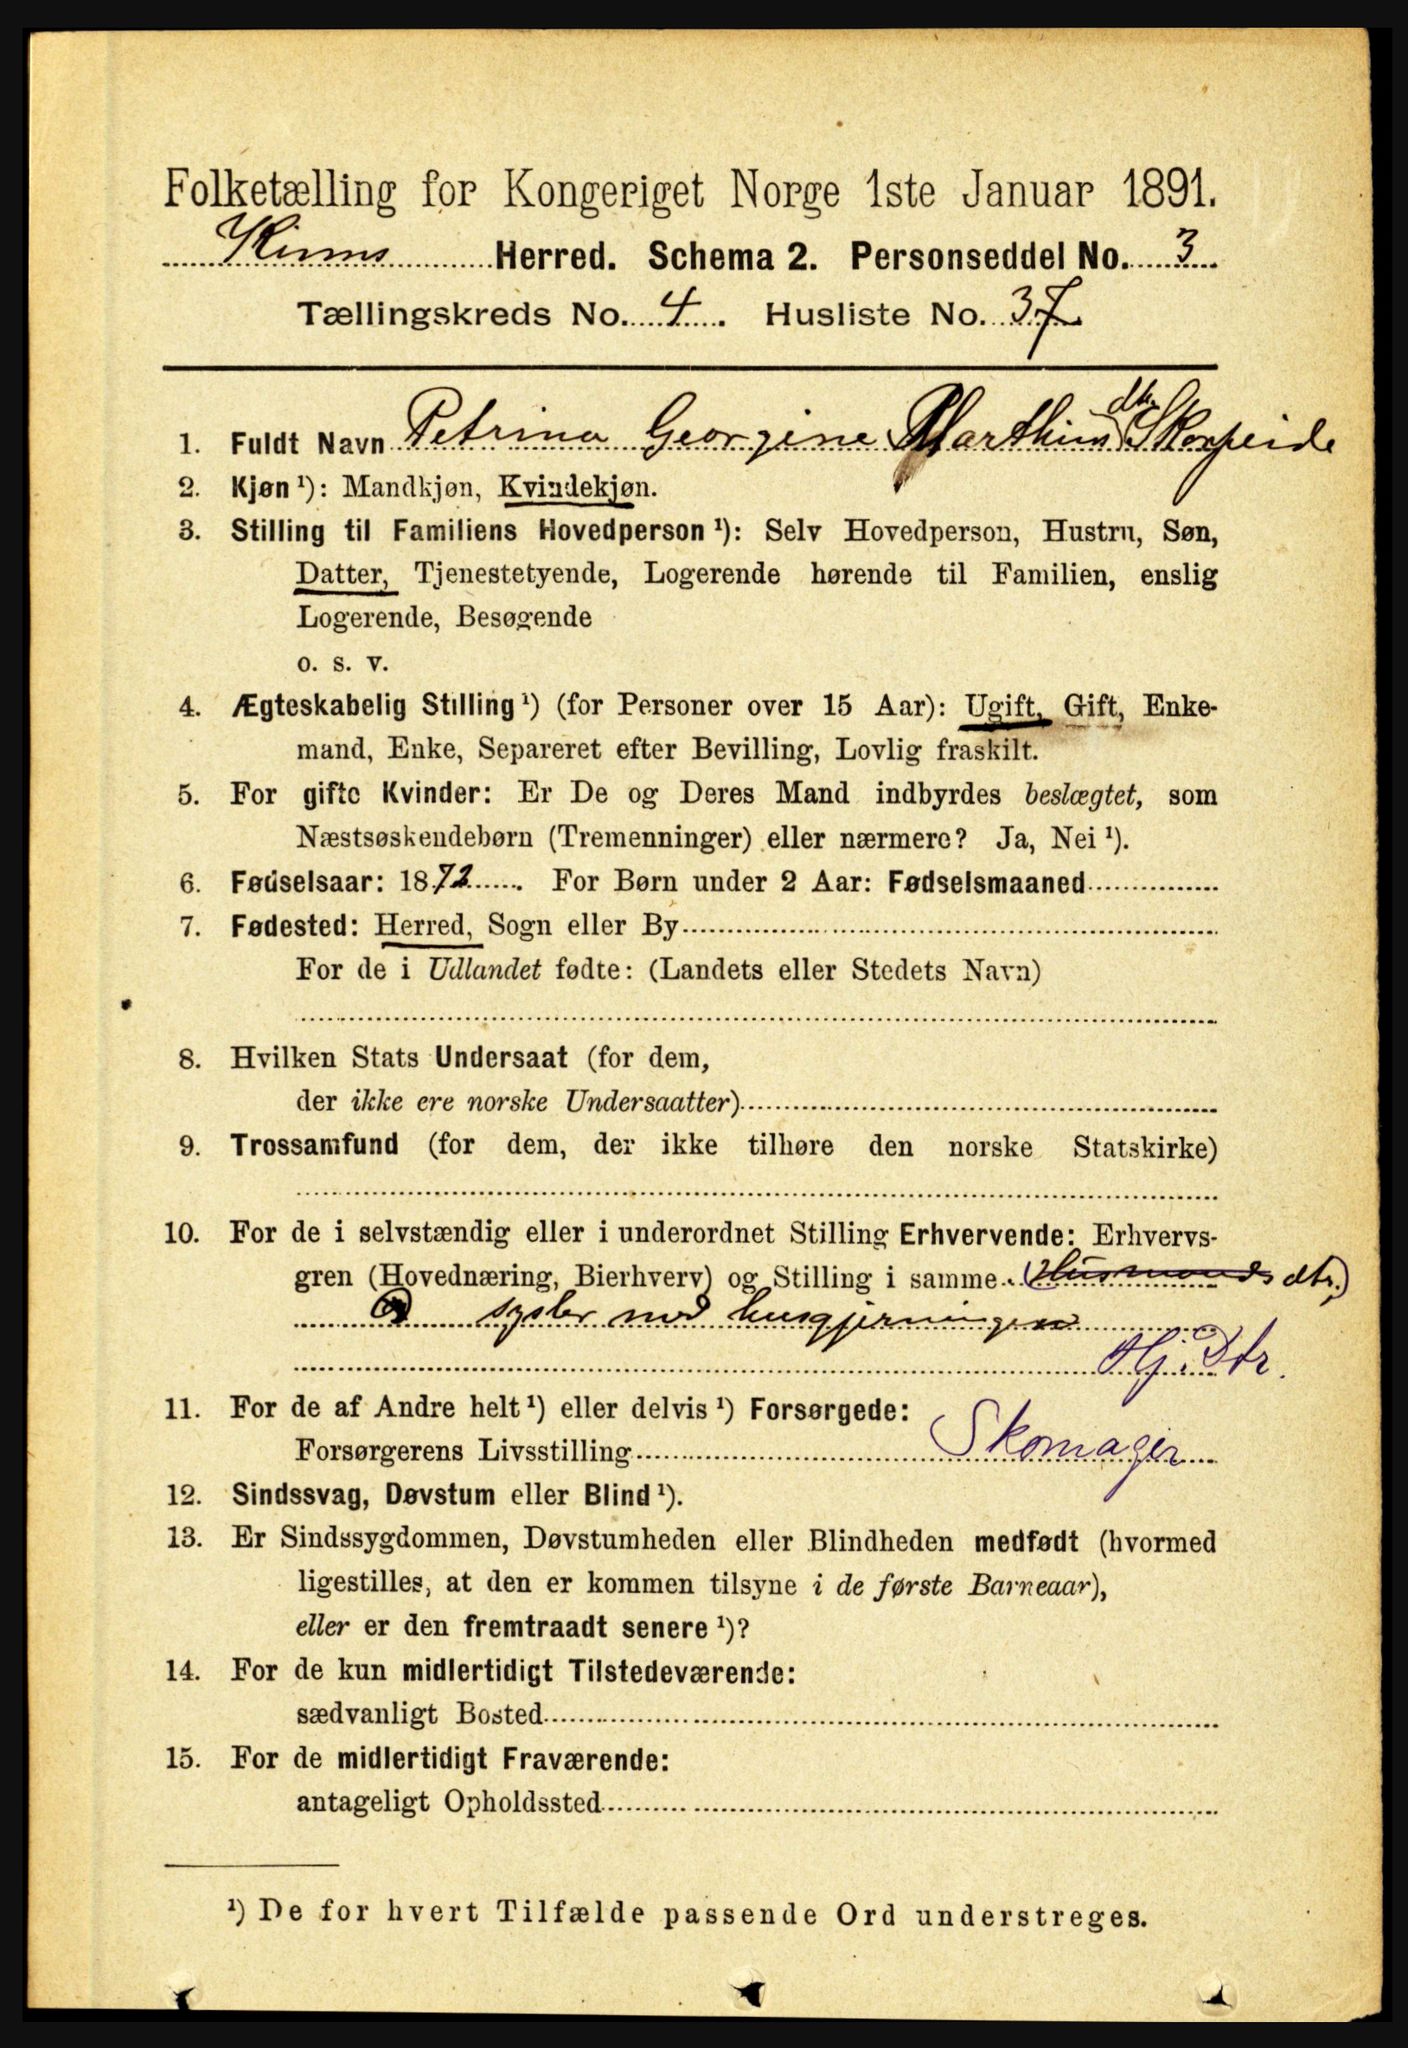 Folketælling for Kongeriget Norge 1ste Januar 1891.
Kinns Herred. Schema 2. Personseddel No. 3
Tællingskreds No. 4. Husliste No. 37
1. Fuldt Navn Petrina Georgine Marthins dtr. Skorpeide
2. Kjøn ¹): Mandkjøn, Kvindekjøn.
3. Stilling til Familiens Hovedperson ¹): Selv Hovedperson, Hustru, Søn,
Datter, Tjenestetyende, Logerende hørende til Familien, enslig
Logerende, Besøgende
o. s. v.
4. Ægteskabelig Stilling ¹) (for Personer over 15 Aar): Ugift, Gift, Enke-
mand, Enke, Separeret efter Bevilling, Lovlig fraskilt.
5. For gifte Kvinder: Er De og Deres Mand indbyrdes beslægtet, som
Næstsøskendebørn (Tremenninger) eller nærmere? Ja, Nei ¹).
6. Fødselsaar: 1872. For Børn under 2 Aar: Fødselsmaaned
7. Fødested: Herred, Sogn eller By
For de i Udlandet fødte: (Landets eller Stedets Navn)
8. Hvilken Stats Undersaat (for dem,
der ikke ere norske Undersaatter)
9. Trossamfund (for dem, der ikke tilhøre den norske Statskirke)
10. For de i selvstændig eller i underordnet Stilling Erhvervende: Erhvervs-
gren (Hovednæring, Bierhverv) og Stilling i samme (Husmands dtr.)
sysler med husgjerningen
Hj. Dtr.
11. For de af Andre helt ¹) eller delvis ¹) Forsørgede:
Forsørgerens Livsstilling Skomager
12. Sindssvag, Døvstum eller Blind ¹).
13. Er Sindssygdommen, Døvstumheden eller Blindheden medfødt (hvormed
ligestilles, at den er kommen tilsyne i de første Barneaar),
eller er den fremtraadt senere ¹)?
14. For de kun midlertidigt Tilstedeværende:
sædvanligt Bosted
15. For de midlertidigt Fraværende:
antageligt Opholdssted
¹) De for hvert Tilfælde passende Ord understreges.